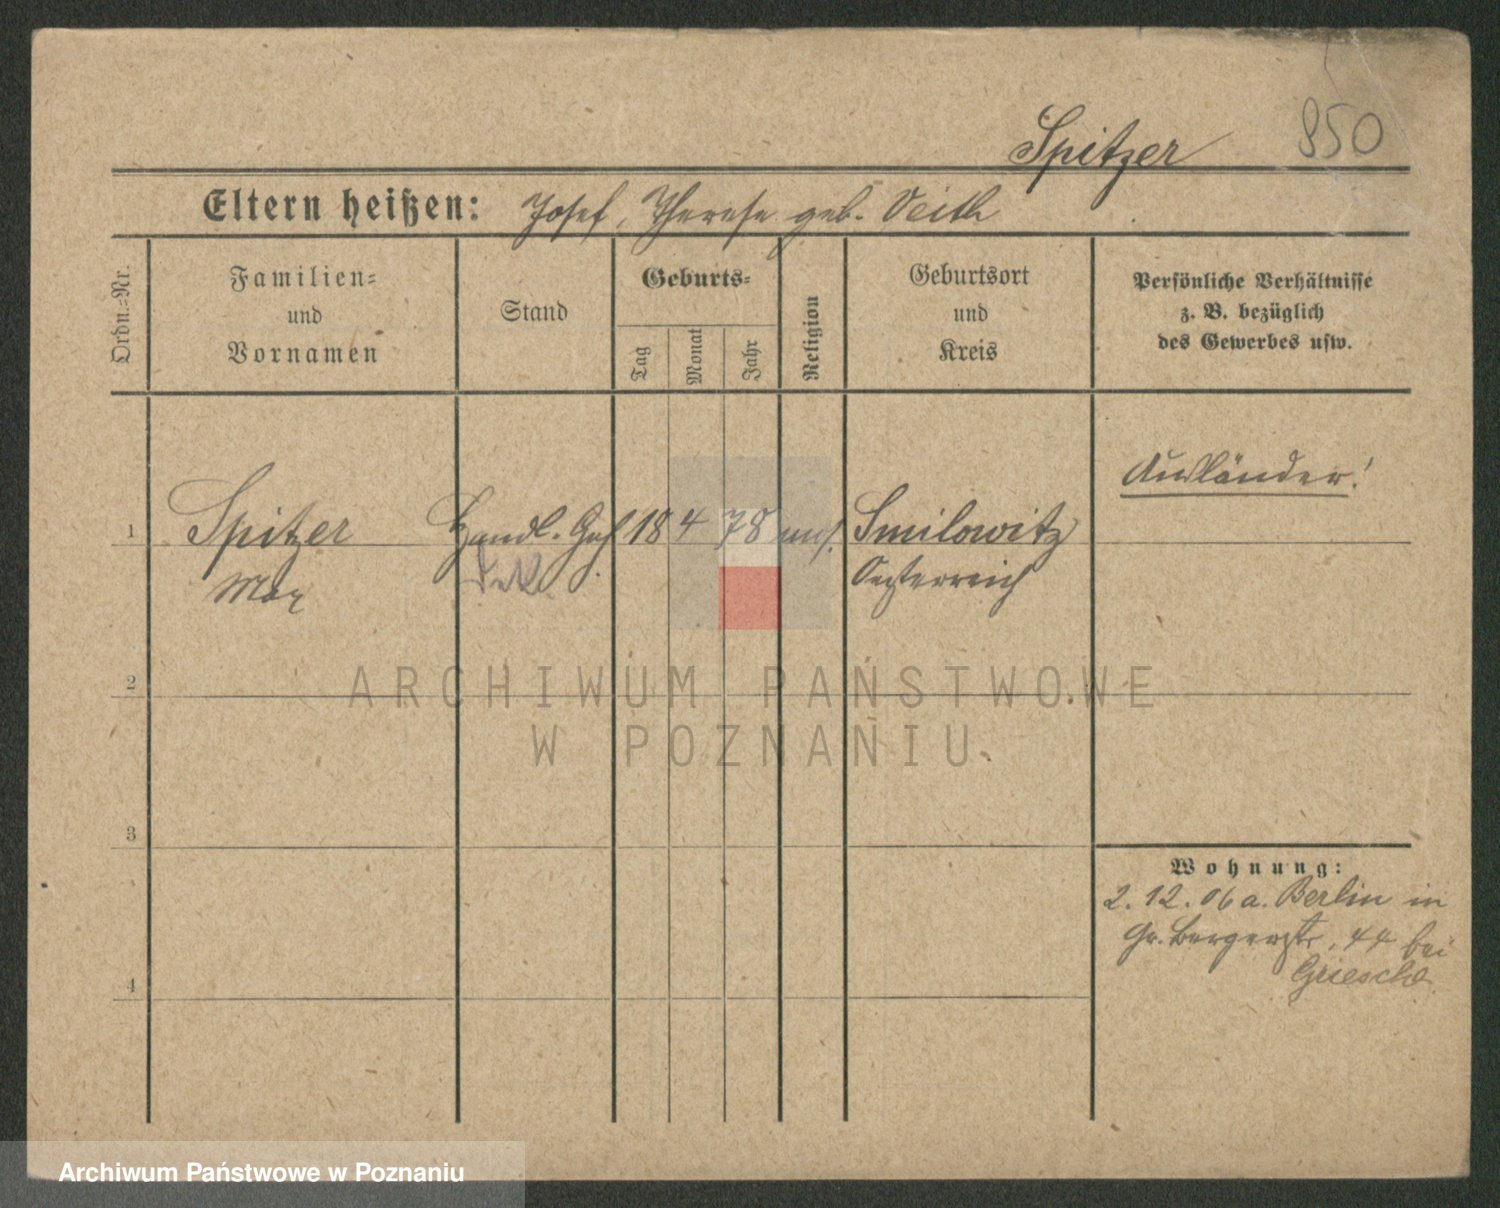 Spitzer 850
Eltern heißen: Josef, Therese geb. Veith
Ordn.-Nr.
Familien-
und
Vornamen
Stand
Geburts-
Tag
Monat
Jahr
Religion
Geburtsort
und
Kreis
Persönliche Verhältnisse
z. B. bezüglich
des Gewerbes usw.
Ausländer!
1 Spitzer Handl. Geh. 18 4 78 mos. Smilowitz
Max Oesterreich
2
ARCHIWUM PAŃSTWOWE
W POZNANIU
3
Wohnung:
2. 12. 06 a. Berlin in
Gr. Bergerstr. 44 bei
Griesche
4
Archiwum Państwowe w Poznaniu